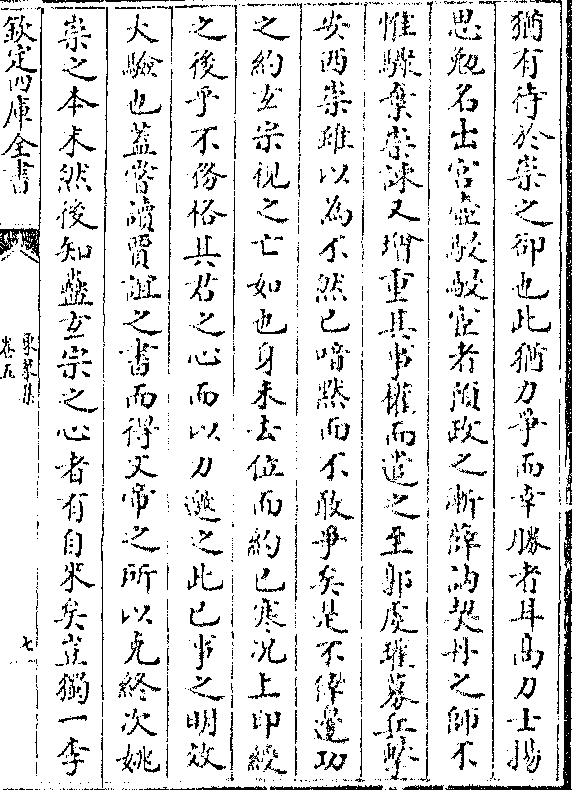 猶有待於崇之卻也此猶力爭而幸勝者耳高力士楊
思勉名出宮壼駸駸宦者預政之漸薛訥契丹之師不
惟驟棄崇諫又增重其事權而遣之至郭䖍瓘募兵擊
安西崇雖以為不然已喑黙而不敢爭矣是不倖邊功
之約玄宗視之亡如也身未去位而約已寒况上印綬
之後乎不務格其君之心而以力邀之此已事之明效
大驗也蓋嘗讀賈誼之書而得文帝之所以克終次姚
崇之本末然後知蠱玄宗之心者有自來矣豈獨一李
欽定四庫全書
卷五
七